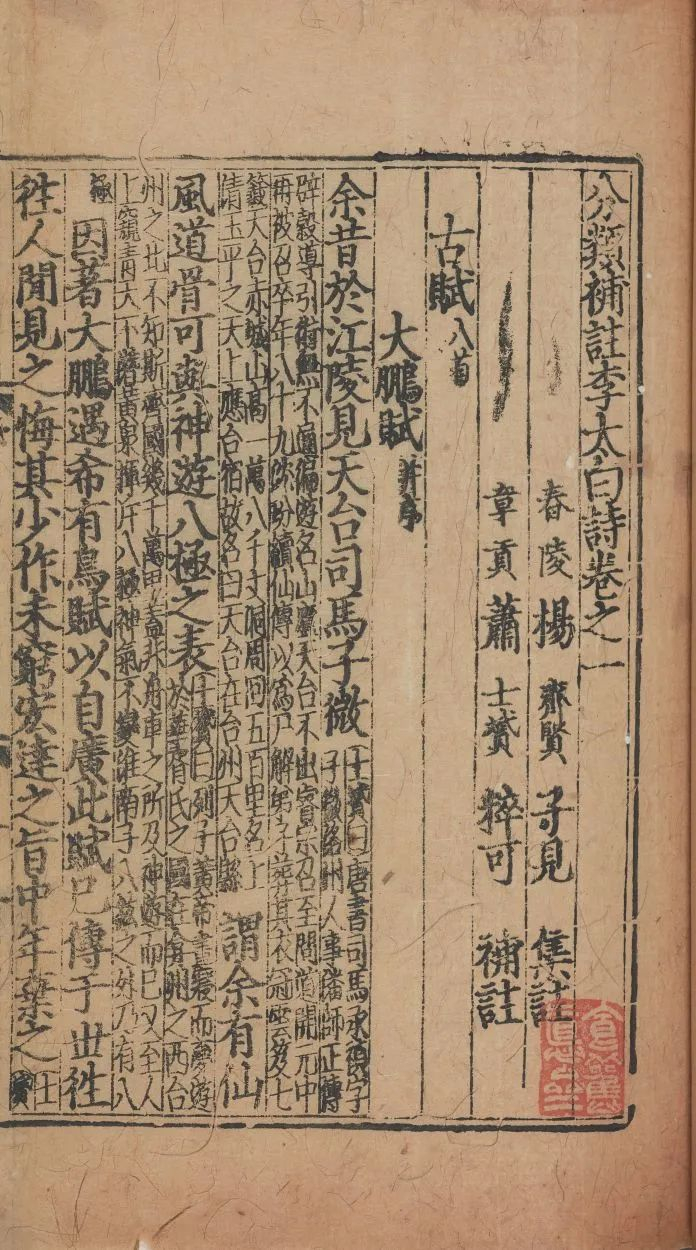 分類補註李太白詩卷之一
舂陵楊齊賢子見集註
章貢蕭士贇粹可補註
古賦八首
大鵬賦并序
余昔於江陵見天台司馬子微士贇曰唐書司馬承禎字
子微洛州人事潘師正傳
辟穀導引術無不通徧遊名山廬天台不出睿宗召至問道開元中
再被召卒年八十九
續仙傳以為尸解弟子葬其衣冠
七
籤天台赤城山高一萬八千丈洞周回五百里名上
清玉平之天上應台宿故名曰天台在台州天台縣謂余有仙
風道骨可與神遊八極之表士贇曰列子黃帝晝寢而夢遊
於華胥氏之國在弇州之西台
州之北不知斯齊國幾千萬里蓋非舟車之所及神遊而已又至人
上窺青天下潛黃泉揮斥八極神氣不變淮南子八紘之外乃有八
極因著大鵬遇希有鳥賦以自廣此賦已傳于世往
往人間見之悔其少作未窮宏達之旨中年棄之士
贇